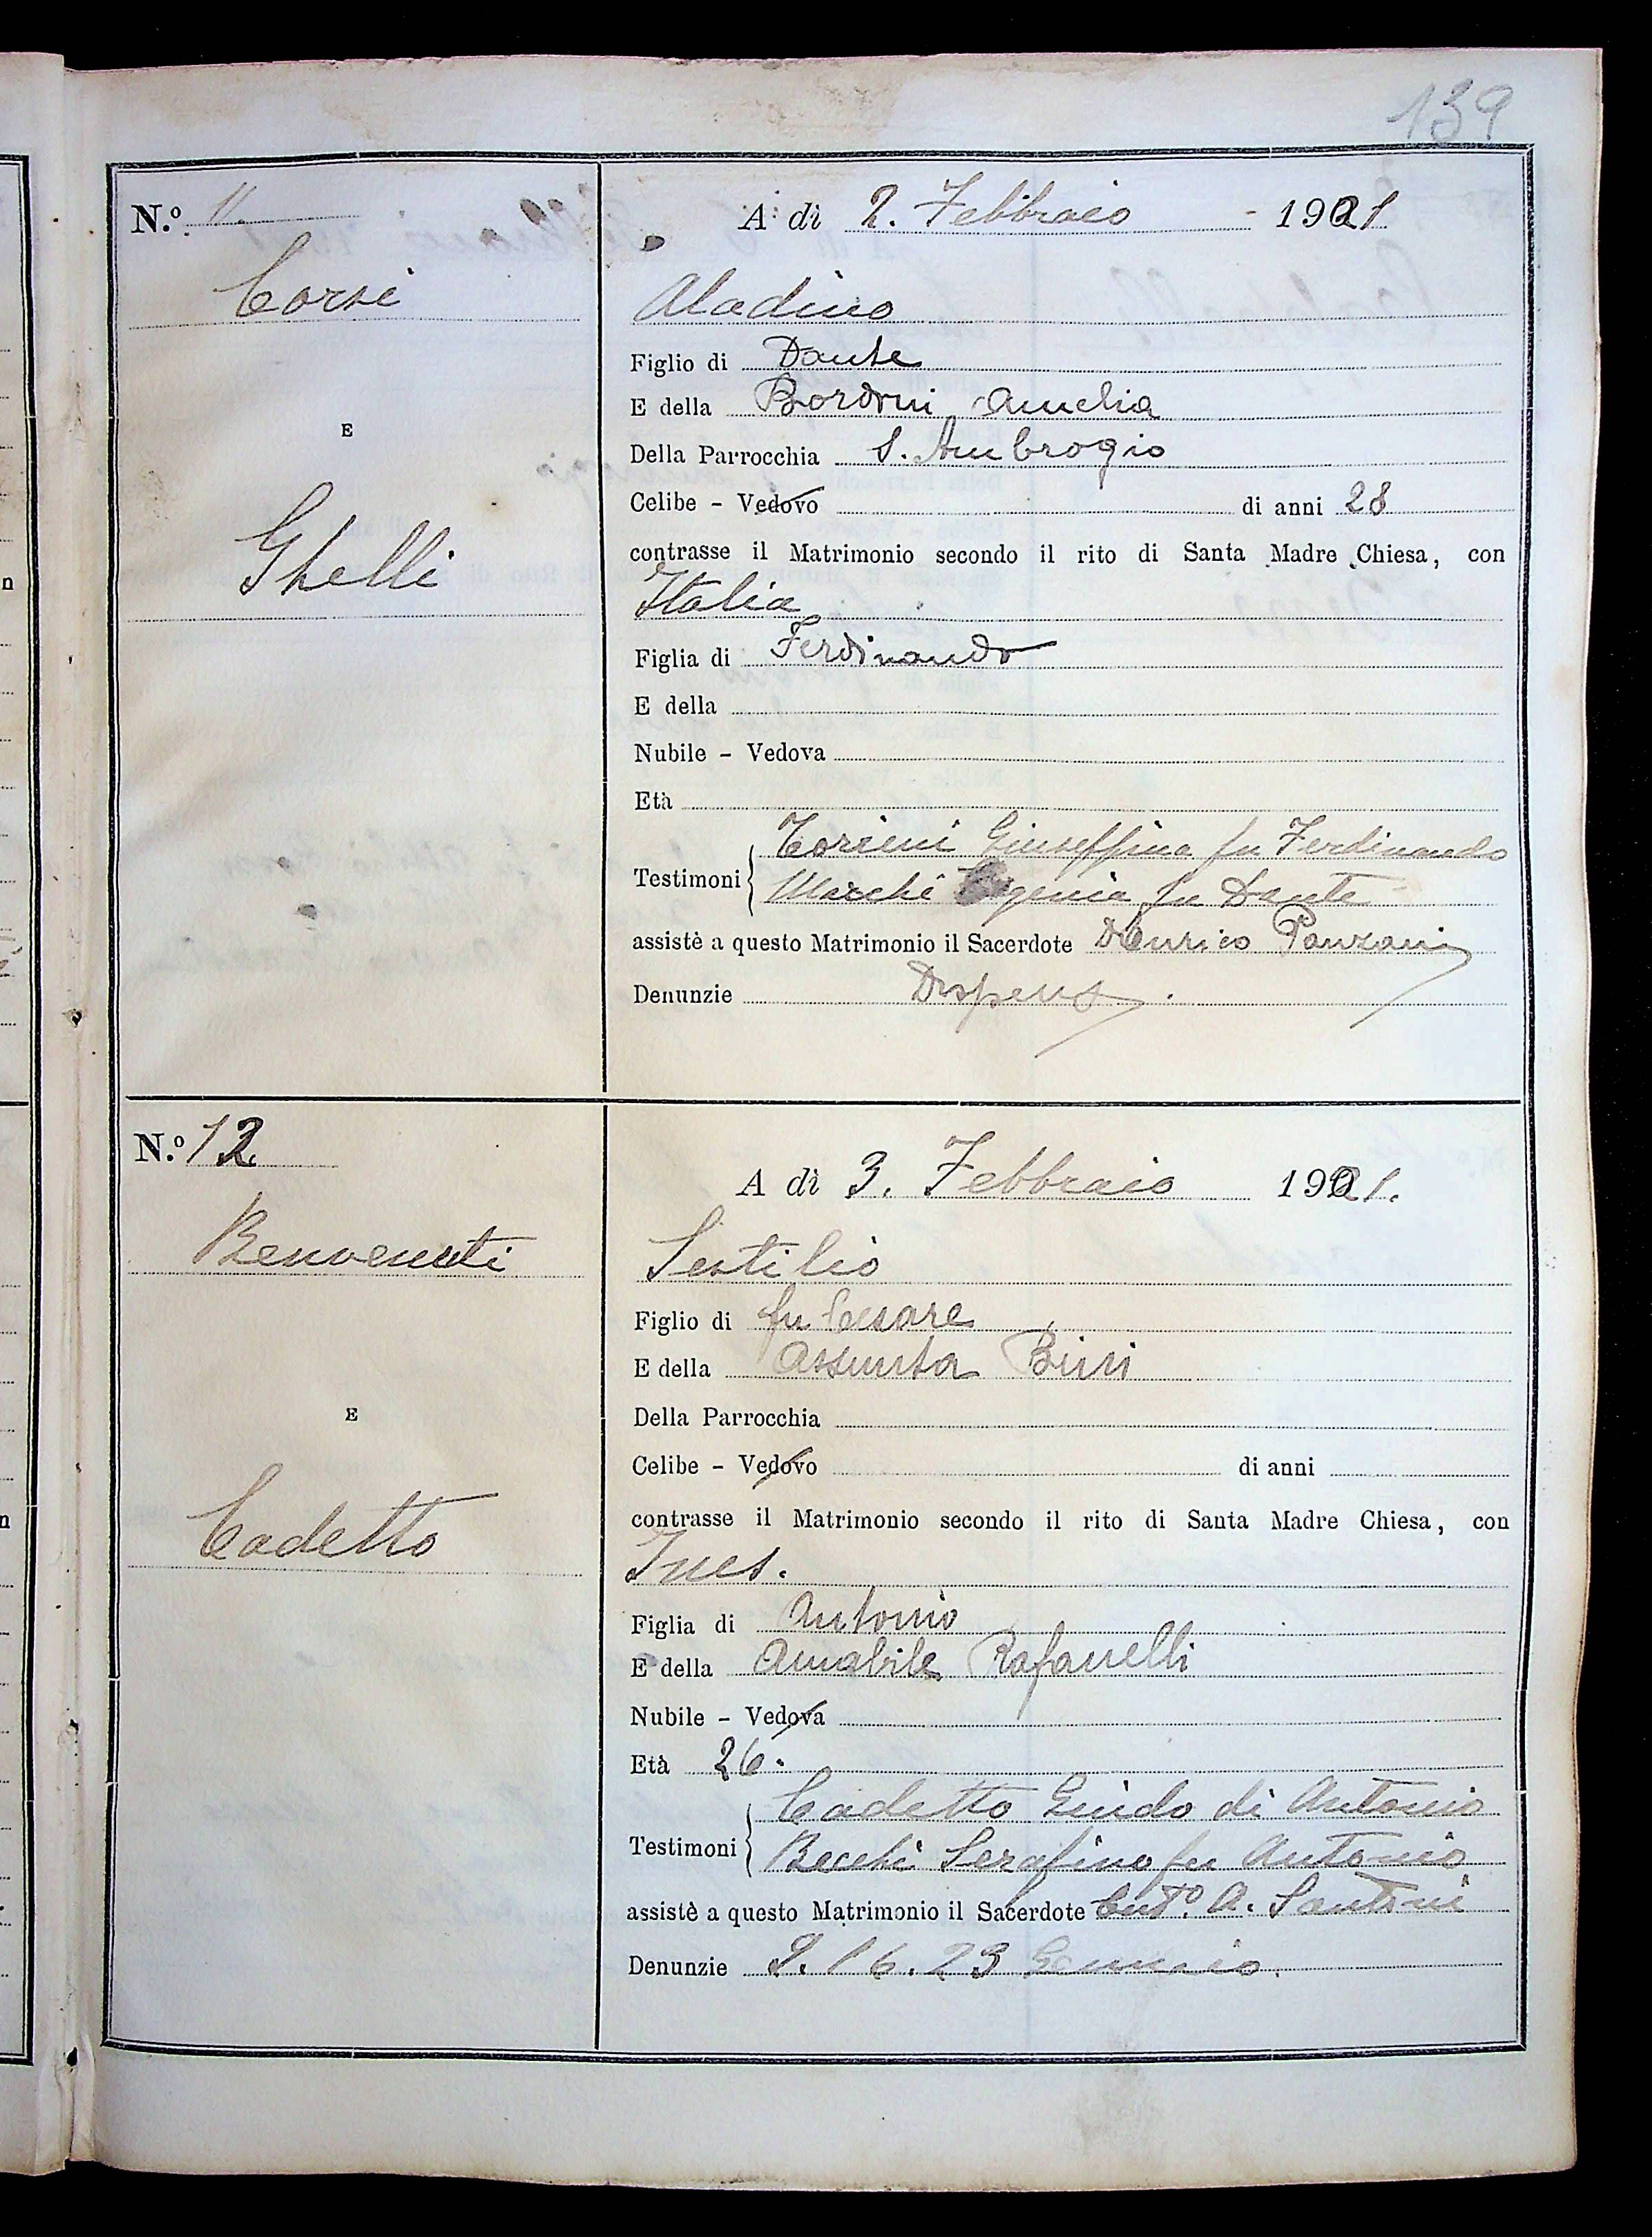 139
N.º 11.
A dì 2. Febbraio - 1921.
Corsi
Aladino
Figlio di Dante
E della Bordoni Amelia
E
Della Parrocchia S. Ambrogio
Celibe - Vedovo di anni 28
Ghelli
contrasse il Matrimonio secondo il rito di Santa Madre Chiesa, con
Italia
Figlia di Ferdinando
E della
Nubile - Vedova
Età
Torsini Giuseppina fu Ferdinando
Testimoni
Marchi Eugenia fu Dante
assistè a questo Matrimonio il Sacerdote D Enrico Panzani
Denunzie Dispensa.
N.º 12.
A dì 3. Febbraio 1921.
Benvenuti
Sestilio
Figlio di fu Cesare
E della Assunta Bini
E
Della Parrocchia
Celibe - Vedovo di anni
Cadetto
contrasse il Matrimonio secondo il rito di Santa Madre Chiesa, con
Ines.
Figlia di Antonio
E della Amabile Rafanelli
Nubile - Vedova
Età 26.
Cadetto Guido di Antonio
Testimoni
Becchi Serafino fu Antonio
assistè a questo Matrimonio il Sacerdote A. Santoni
Denunzie 9. 16. 23 Gennaio.